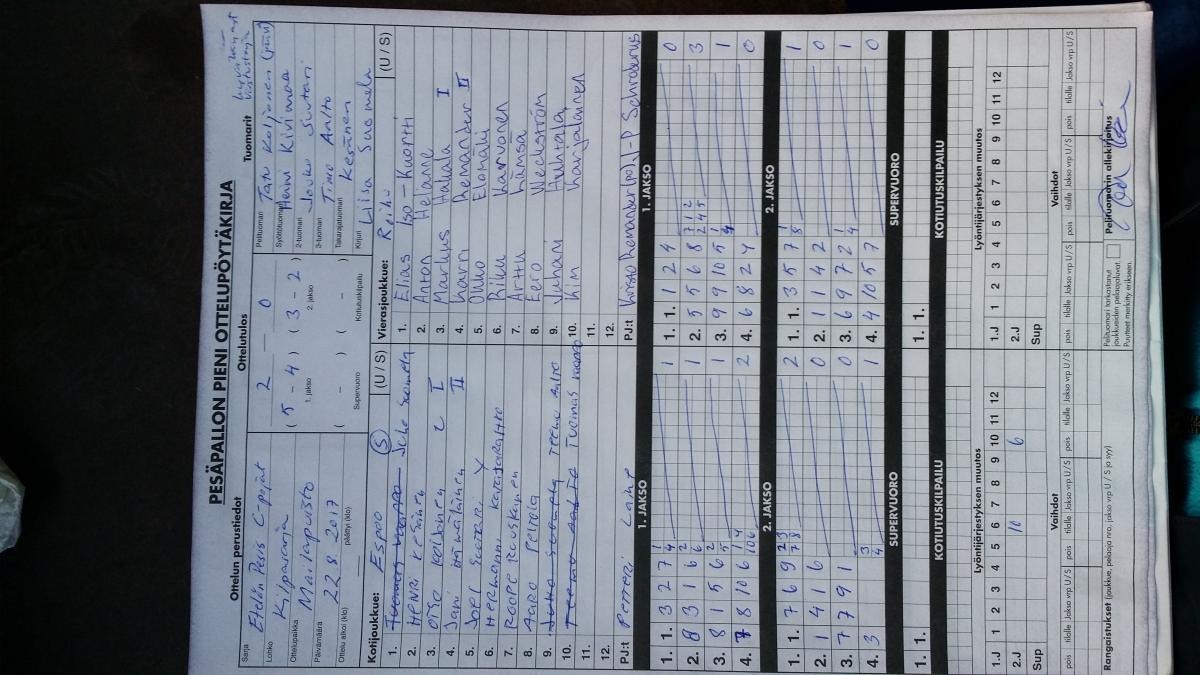 PESÄPALLON PIENI OTTELUPÖYTÄKIRJA
Ottelun perustiedot
Sarja Etelän Pesis C-pojat
Lohko Kilpasarja
Ottelupaikka Mnilapuisto
Päivämäärä 22.8.2017
Ottelu alkoi (klo) päättyi (klo)
Ottelutulos
2 — 0
( 5 - 4 ) ( 3 - 2 )
1. jakso 2. jakso
( - ) ( - )
Supervuoro Kotiutuskilpailu
Tuomarit
Pelituomari Tatu Koljonen (pöü)
Syöttötuomari Henni Kivimaa
2-tuomari Jouko Suutari
3-tuomari Timo Aalto
Takarajatuomari Kesänen
Kirjuri Liisa Suomela
Kotijoukkue: Espoo (U / S)
1. Juho Suomela
2. Henri Kesänen
3. Otso Koljonen 2 I
4. Jani Hämäläinen II
5. Joel Suutari Y
6. Hermanni Karjaraitto
7. Roope Reuskanen
8. Aaro Peltola
9. Teemu Aalto
10. Tuomas
11.
12.
PJ:t Petteri Lahti
Vierasjoukkue: Riihi (U / S)
1. Elias Iso-Kuortti
2. Anton Helanne
3. Markus Hakala I
4. Harri Remander II
5. Onko Elomäki
6. Riku Karvonen
7. Arttu Hämsä
8. Eero Weckström
9. Juhani Huhtala
10. Kim Karjalainen
11.
12.
PJ:t Kristo Remander (po.) - P Schroderus
1. JAKSO
1. 1. 3 2 7 1 4 1
2. 8 3 1 6 2 6 1
3. 8 1 5 6 2 5 1
4. 7 8 10 6 1 4 10 6 2
2. JAKSO
1. 1. 7 6 9 2 3 7 8 2
2. 1 4 1 6 0
3. 7 7 9 1 0
4. 3 3 4 1
SUPERVUORO
1. 1.
KOTIUTUSKILPAILU
1. JAKSO
1. 1. 1 2 4 0
2. 5 5 6 8 7 1 2 2 4 5 3
3. 9 9 10 5 1 4 1
4. 6 8 2 4 0
2. JAKSO
1. 1. 3 5 7 1 8 1
2. 1 1 4 2 0
3. 6 9 7 2 1 4 1
4. 4 10 5 7 0
SUPERVUORO
1. 1.
KOTIUTUSKILPAILU
Lyöntijärjestyksen muutos
1.J 1 2 3 4 5 6 7 8 9 10 11 12
2.J 10 6
Sup
Vaihdot
pois tilalle Jakso vrp U / S pois tilalle Jakso vrp U / S pois tilalle Jakso vrp U / S
Lyöntijärjestyksen muutos
1.J 1 2 3 4 5 6 7 8 9 10 11 12
2.J
Sup
Vaihdot
pois tilalle Jakso vrp U / S pois tilalle Jakso vrp U / S pois tilalle Jakso vrp U / S
Rangaistukset (joukkue, pelaaja nro, jakso vrp U / S ja syy)
Pelituomari tarkastanut joukkueiden pelaajaluvat. Puutteet merkitty erikseen.
Pelituomarin allekirjoitus